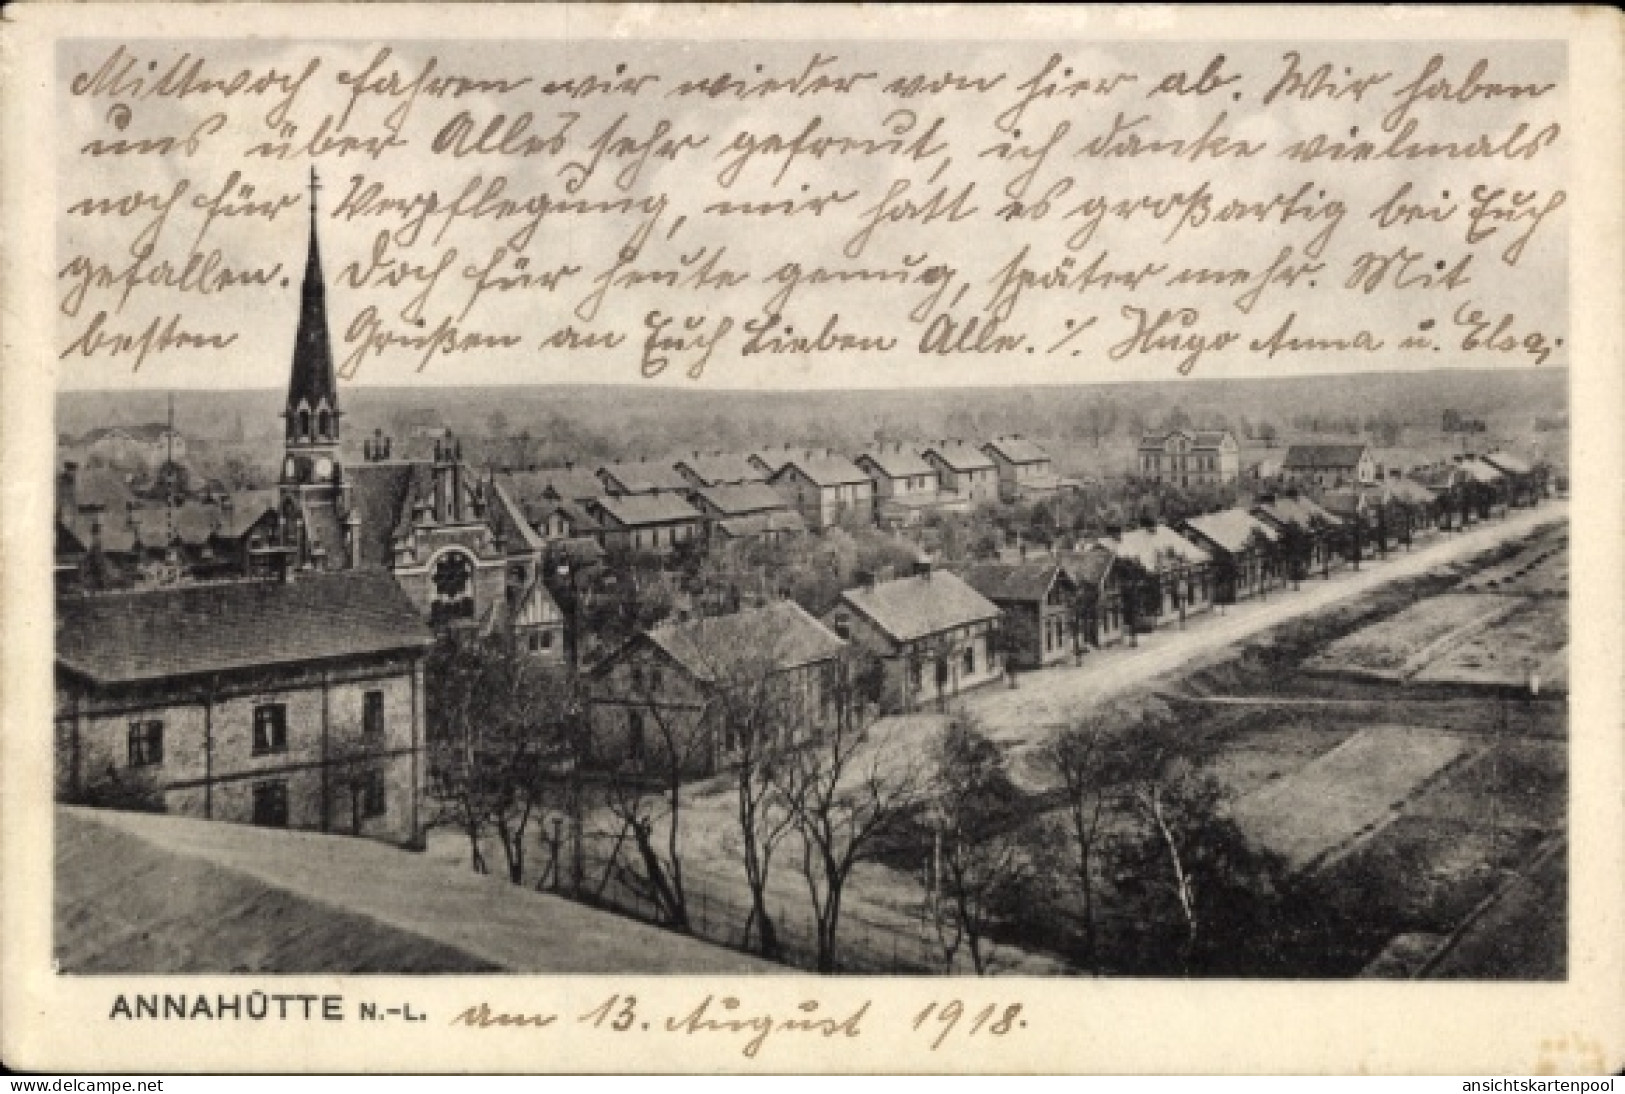 Mittwoch fahren wir wieder von hier ab. Wir haben
uns über Alles sehr gefreut, ich danke vielmals
noch für Verpflegung, mir hatt es großartig bei Euch
gefallen. Doch für heute genug, später mehr. Mit
besten Grüßen an Euch Lieben Alle. ·/. Hugo Anna u. Elsa.
ANNAHÜTTE N.-L. am 13. August 1918.
www.delcampe.net
ansichtskartenpool